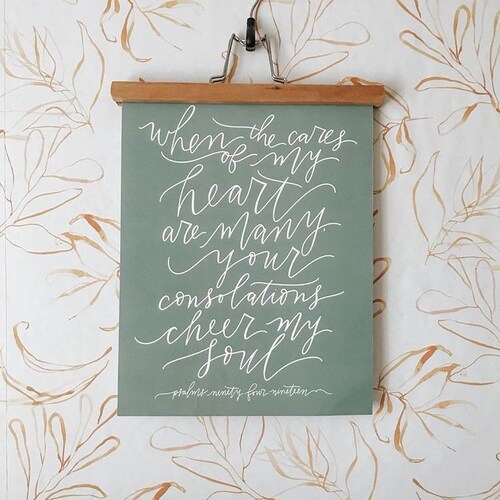 when the cares
of my
heart
are many,
your
consolations
cheer my
soul
psalms ninety four nineteen